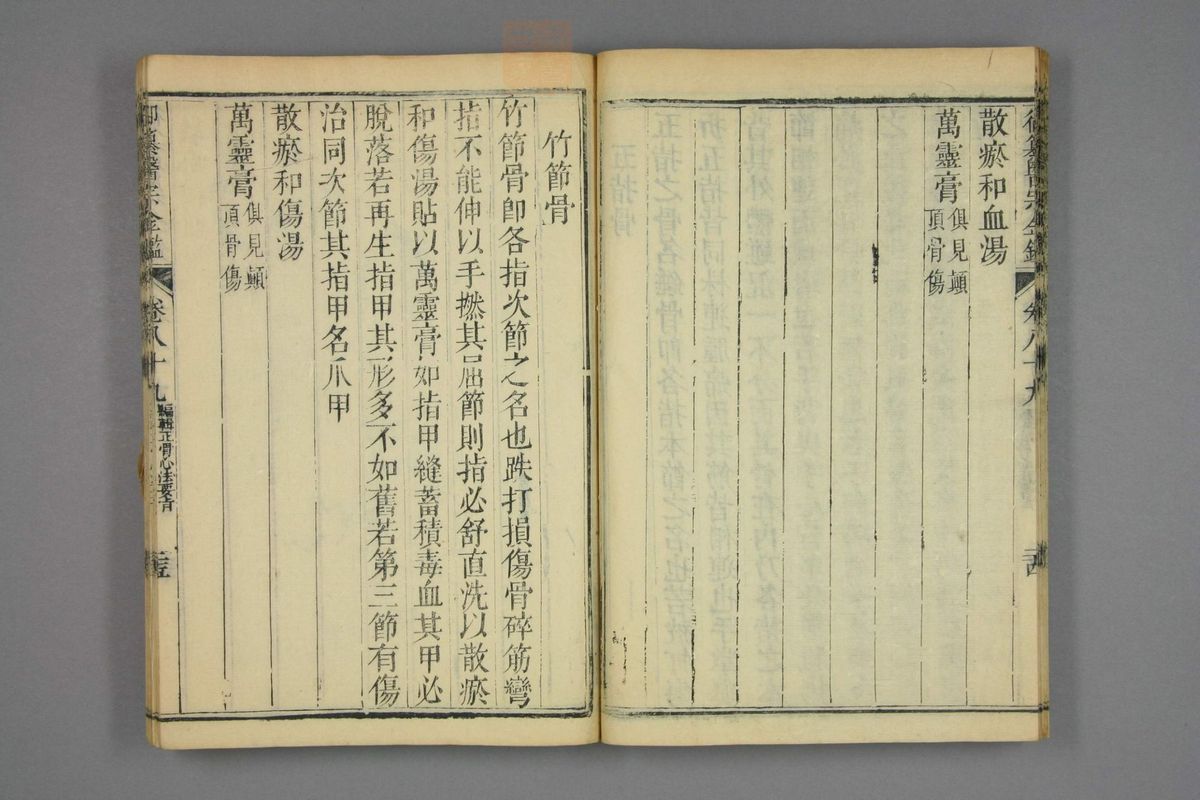 散瘀和血湯
萬靈膏
俱見顛
頂骨傷
卷八十九
竹節骨
竹節骨卽各指次節之名也跌打損傷骨碎筋彎
指不能伸以手撚其屈節則指必舒直洗以散瘀
和傷湯貼以萬靈膏如指甲縫蓄積毒血其甲必
脫落若再生指甲其形多不如舊若第三節有傷
治同次節其指甲名爪甲
散瘀和傷湯
萬靈膏
俱見顛
頂骨傷
御纂醫宗金鑑
卷八十九
編輯正骨心法要旨